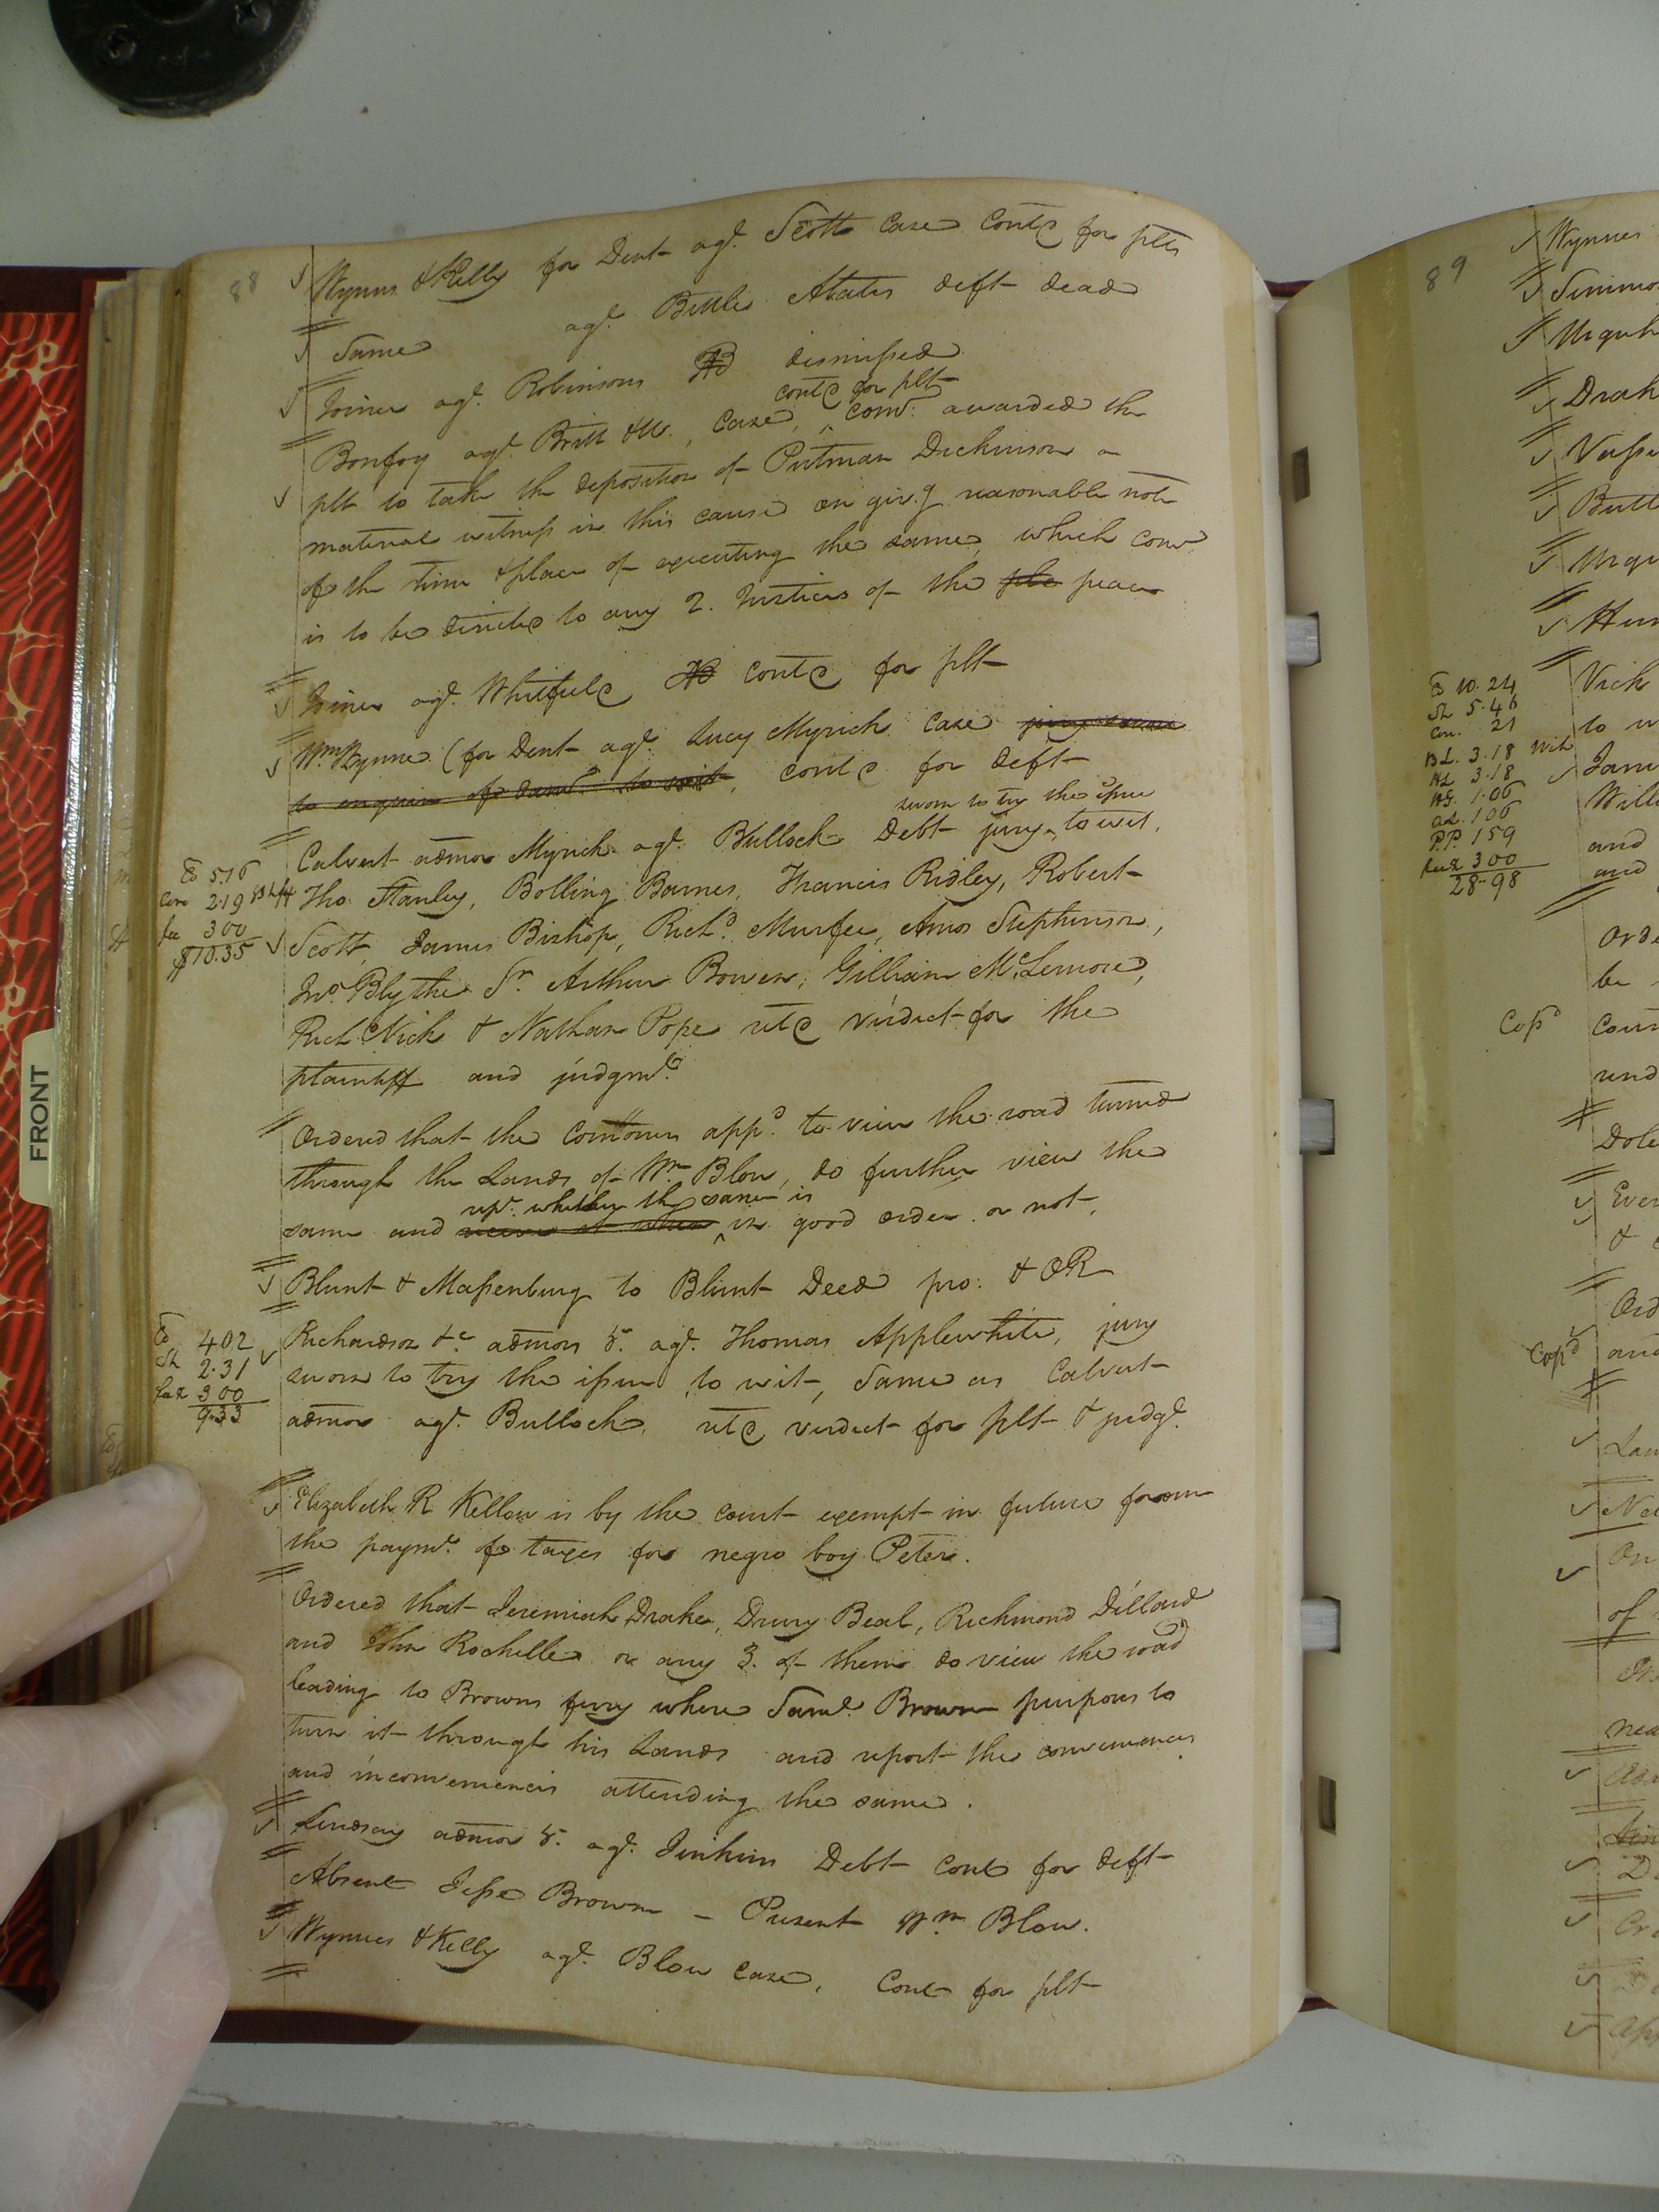 88
Wynns & Kelly for Dent agt. Scott Case Contd for plts
Same agt. Bittle Abates deft dead
Joiner agt. Robinson AB dismissed
contd for plt
Bonfoy agt. Britt &U., Case, ^ com: awarded the
plt to take the deposition of Putman Dickinson a
material witness in this cause on givg reasonable note
of the time & place of executing the same, which comn
is to be directed to any 2. Justices of the pla peace
Joiner agt. Whitfield AB contd for plt
Wm Wynne (for Dent agt. Lucy Myrick Case jury sworn
to enquire of dama. to wit, contd for deft
sworn to try the issue
Calvert admor Myrick agt. Bullock Debt jury ^ to wit,
Co 5.16
Tho. Stanley, Bolling Barnes, Francis Ridley, Robert
2.19
fee 300
$10.35
Scott, James Bishop, Richd. Murfee, Amos Stephenson,
Jno. Blythe Sr. Arthur Bowen, Gilliam McLemore,
Richd Vick & Nathan Pope retd verdict for the
plaintiff and judgmt.
Ordered that the Comrs appd. to view the road turned
through the Lands of Wm Blow, do further view the
rept. whether the same is
same and ^ in good order or not,
Blunt & Massenburg to Blunt Deed pro. & OR
Co 402
Sh 2.31
fee 300
9.33
Richardson &c admors &. agt. Thomas Applewhite, jury
sworn to try the issue, to wit, Same as Calvert
admor agt. Bullock, retd verdict for plt & judgt.
Elizabeth R Kellow is by the court exempt in future from
the paymt. of taxes for negro boy Peter.
Ordered that Jeremiah Drake, Drury Beal, Richmond Dillard
and John Rochelle or any 3. of them do view the road
leading to Browns ferry where Saml. Brown purposes to
turn it through his Lands and report the conveniences
and inconveniencies attending the same.
Lindsay admor &. agt. Jenkins Debt Cont for deft
Absent Jesse Brown – Present Wm. Blow.
Wynnes & Kelly agt. Blow Case, Cont for plt
FRONT
89
Wynnes
Simmo
Urquh
Drak
Butt
Urqu
Hun
Co 10.24
Sh 5.46
Con. 21
BL. 3.18
HL 3.18
AG. 1.06
ad. 106
P.P. 159
fee 300
28-98
Vick
to w
Jam
Will
and
and
Orde
be
Copd
Cour
und
Dole
Ever
&
Ord
Copd
and
On
of
nea